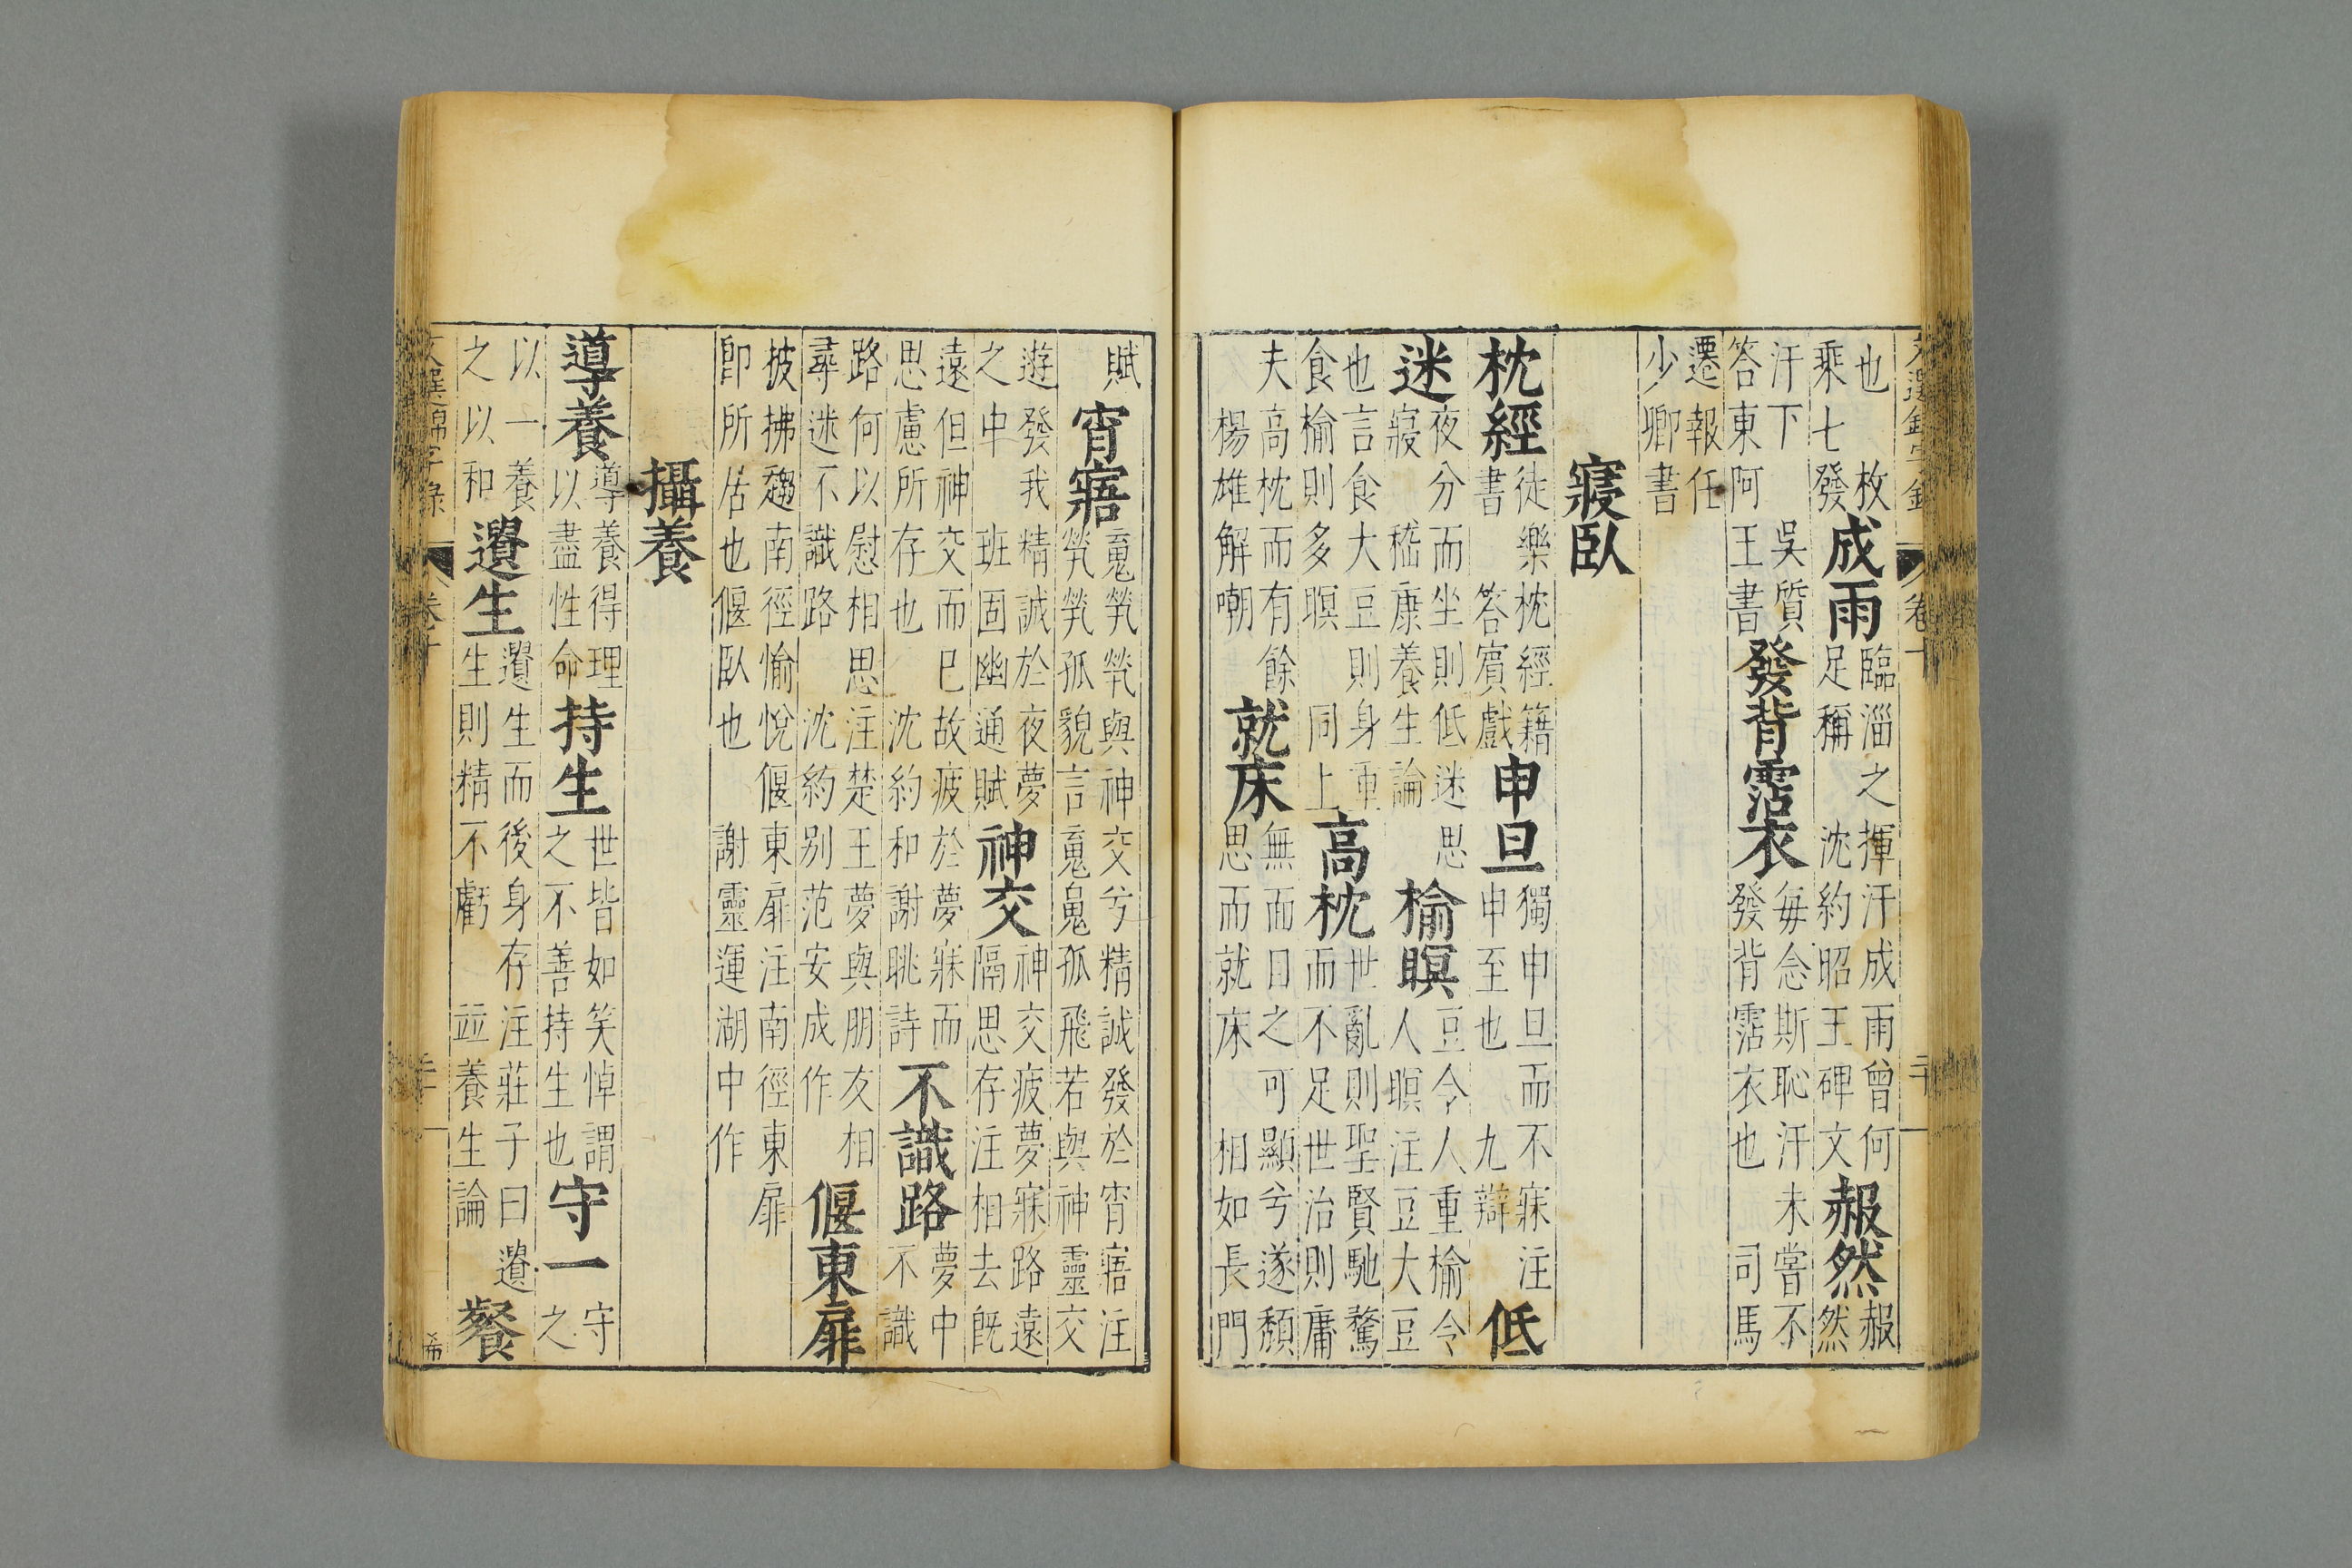 文選錦字錄 卷十 二十
也 枚乘七發 成雨 臨淄之揮汗成雨曾何足稱 沈約昭王碑文 赧然 赧然
汗下 吳質答東阿王書 發背霑衣 每念斯恥汗未嘗不發背霑衣也 司馬
遷報任少卿書
寢臥
枕經 徒樂枕經籍書 答賓戲 申旦 獨申旦而不寐注申至也 九辯 低
迷 夜分而坐則低迷思寢 嵇康養生論 榆瞑 豆令人重榆令人瞑注豆大豆
也言食大豆則身重食榆則多瞑 同上 高枕 世亂則聖賢馳騖而不足世治則庸
夫高枕而有餘 楊雄解嘲 就床 無面目之可顯兮遂頹思而就床 相如長門
賦 宵寤 䰟煢煢與神交兮精誠發於宵寤注煢煢孤貌言䰟孤飛若與神靈交
遊發我精誠於夜夢之中 班固幽通賦 神交 神交疲夢寐路遠隔思存注相去旣
遠但神交而已故疲於夢寐而思慮所存也 沈約和謝眺詩 不識路 夢中不識
路何以慰相思注楚王夢與朋友相尋迷不識路 沈約別范安成作 偃東扉
披拂趨南徑愉悅偃東扉注南徑東扉卽所居也偃臥也 謝靈運湖中作
攝養
導養 導養得理以盡性命 持生 世皆如笑悼謂之不善持生也 守一 守之
以一養之以和 遺生 遺生而後身存注莊子曰遺生則精不虧 並養生論 餐
文選錦字錄 卷十